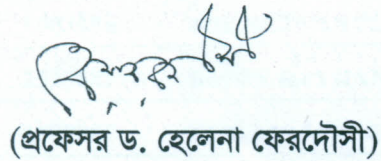 (প্রফেসর ড. হেলেনা ফেরদৌসী)